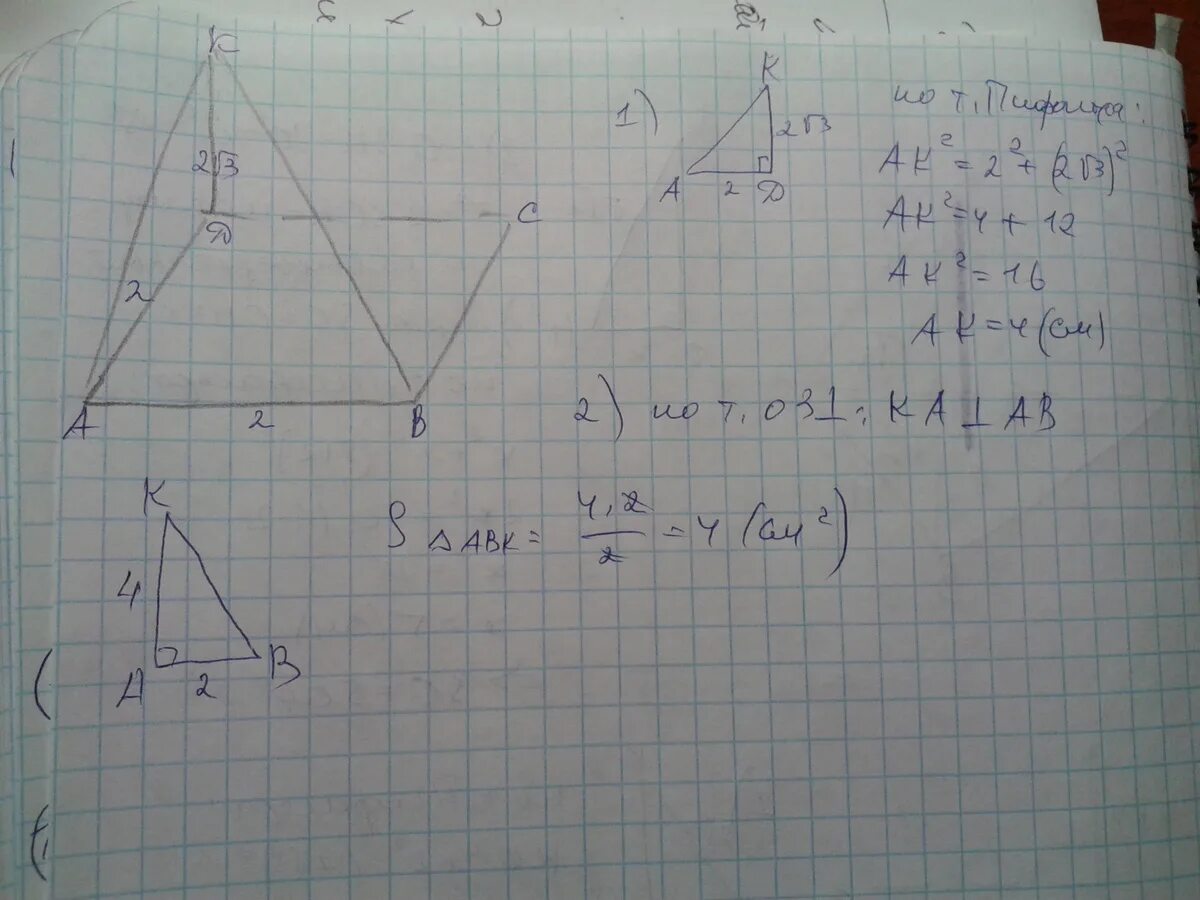 K
2√3
D
C
2
A
2
B
1)
K
2√3
A
2
D
по т. Пифагора:
AK² = 2² + (2√3)²
AK² = 4 + 12
AK² = 16
AK = 4 (см)
2) по т. о 3⊥: KA ⊥ AB
K
4
A
2
B
S △ABK = 4·2/2 = 4 (см²)